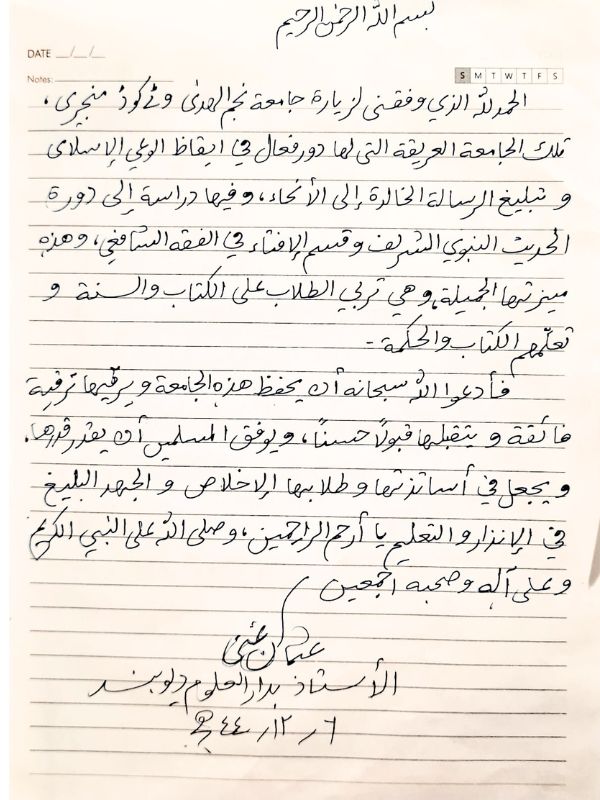 بسم الله الرحمن الرحيم
DATE __/__/__
Notes:
S M T W T F S
الحمد لله الذي وفقني لزيارة جامعة نجم الهدى منجري،
تلك الجامعة العريقة التي لها دور فعال في ايقاظ الوعي الإسلامى
و تبليغ الرسالة الخالدة إلى الأنحاء، وفيها دراسة إلى دورة
الحديث النبوي الشريف وقسم الإفتاء في الفقه الشافعي، وهذه
ميزتها الجميلة، وهي تربي الطلاب على الكتاب والسنة و
تعلّمهم الكتاب والحكمة -
فأدعوا الله سبحانه أن يحفظ هذه الجامعة و يرقّيها ترقية
فائقة و يتقبلها قبولاً حسناً، ويوفق المسلمين أن يقدر قدرها،
و يجعل في أساتذتها و طلابها الإخلاص و الجهد البليغ
في الإنذار و التعليم يا أرحم الراحمين، وصلى الله على النبي الكريم
و على آله وصحبه اجمعين
الأستاذ بدار العلوم ديوبند
٦ / ١٢ / ٤٤ ھ